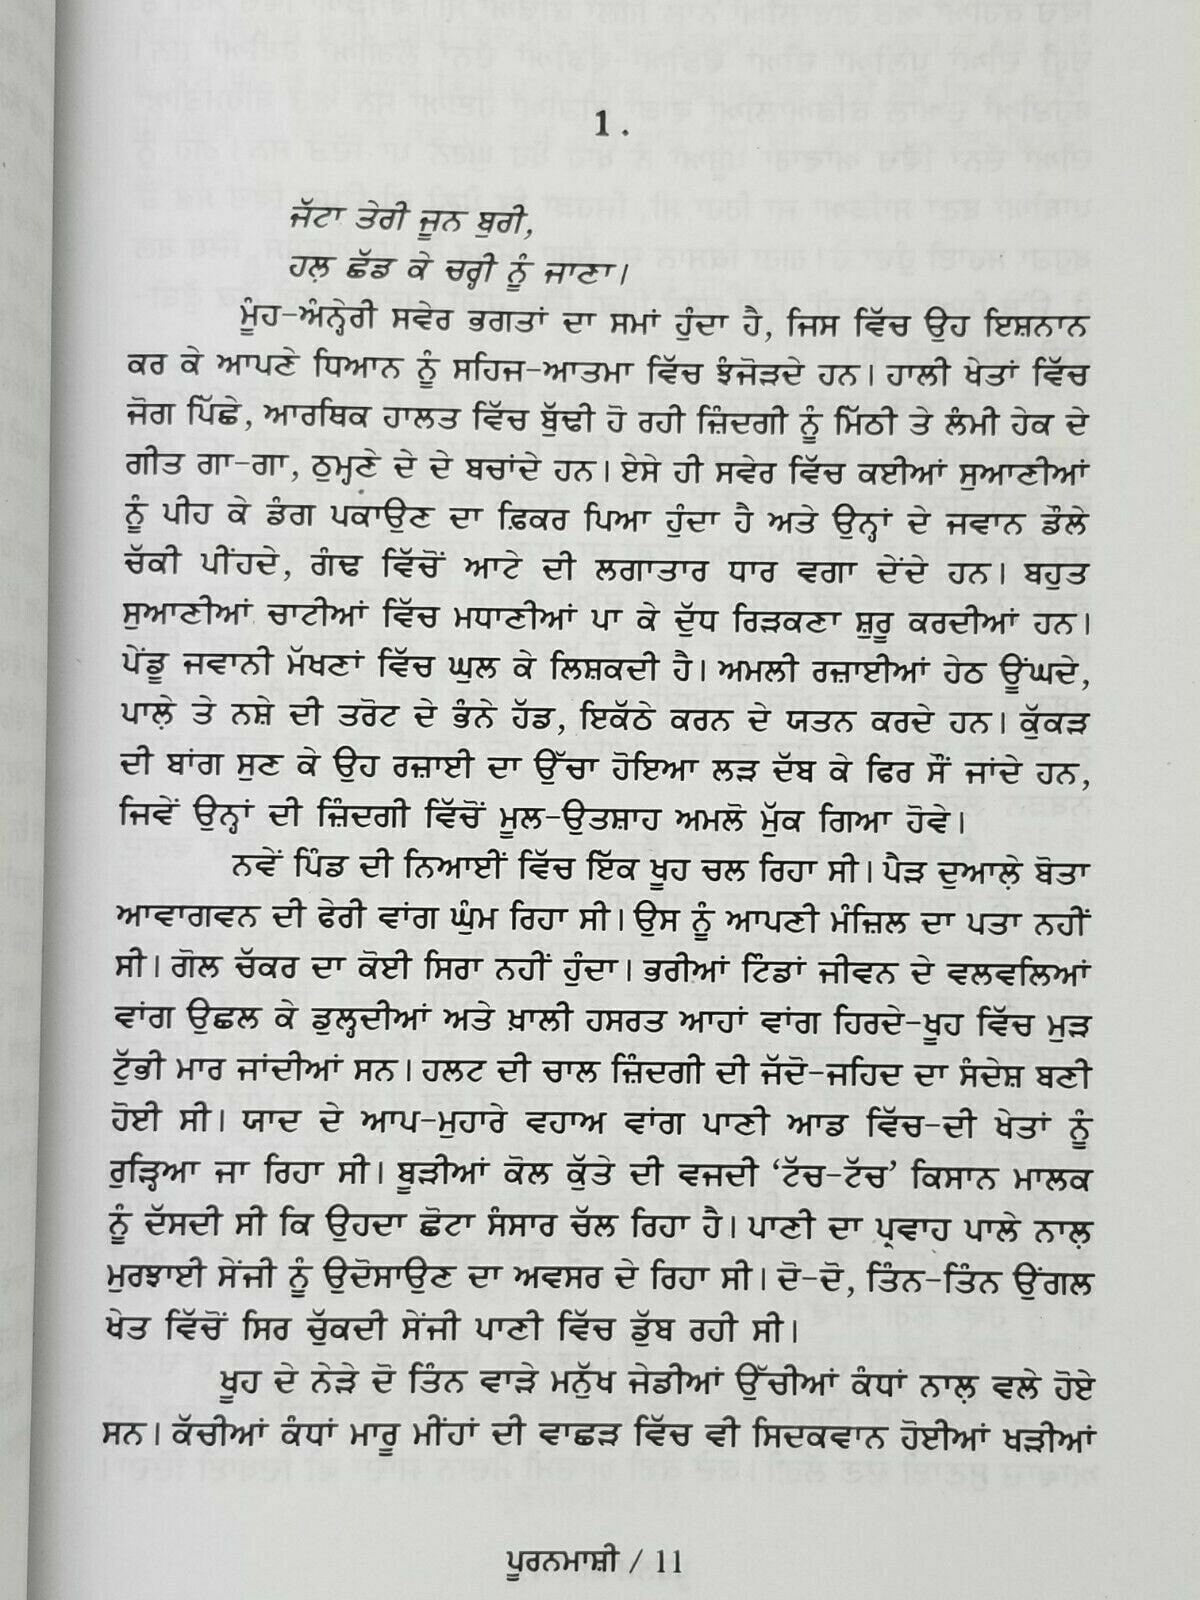 1.
ਜੱਟਾ ਤੇਰੀ ਜੂਨ ਬੁਰੀ,
ਹਲ਼ ਛੱਡ ਕੇ ਚਰ੍ਹੀ ਨੂੰ ਜਾਣਾ।
ਮੂੰਹ-ਅੰਨ੍ਹੇਰੀ ਸਵੇਰ ਭਗਤਾਂ ਦਾ ਸਮਾਂ ਹੁੰਦਾ ਹੈ, ਜਿਸ ਵਿੱਚ ਉਹ ਇਸ਼ਨਾਨ
ਕਰ ਕੇ ਆਪਣੇ ਧਿਆਨ ਨੂੰ ਸਹਿਜ-ਆਤਮਾ ਵਿੱਚ ਝੰਜੋੜਦੇ ਹਨ। ਹਾਲੀ ਖੇਤਾਂ ਵਿੱਚ
ਜੋਗ ਪਿੱਛੇ, ਆਰਥਿਕ ਹਾਲਤ ਵਿੱਚ ਬੁੱਢੀ ਹੋ ਰਹੀ ਜ਼ਿੰਦਗੀ ਨੂੰ ਮਿੱਠੀ ਤੇ ਲੰਮੀ ਹੇਕ ਦੇ
ਗੀਤ ਗਾ-ਗਾ, ਠੁਮ੍ਹਣੇ ਦੇ ਦੇ ਬਚਾਂਦੇ ਹਨ। ਏਸੇ ਹੀ ਸਵੇਰ ਵਿੱਚ ਕਈਆਂ ਸੁਆਣੀਆਂ
ਨੂੰ ਪੀਹ ਕੇ ਡੰਗ ਪਕਾਉਣ ਦਾ ਫ਼ਿਕਰ ਪਿਆ ਹੁੰਦਾ ਹੈ ਅਤੇ ਉਨ੍ਹਾਂ ਦੇ ਜਵਾਨ ਡੌਲੇ
ਚੱਕੀ ਪੀਂਹਦੇ, ਗੰਢ ਵਿੱਚੋਂ ਆਟੇ ਦੀ ਲਗਾਤਾਰ ਧਾਰ ਵਗਾ ਦੇਂਦੇ ਹਨ। ਬਹੁਤ
ਸੁਆਣੀਆਂ ਚਾਟੀਆਂ ਵਿੱਚ ਮਧਾਣੀਆਂ ਪਾ ਕੇ ਦੁੱਧ ਰਿੜਕਣਾ ਸ਼ੁਰੂ ਕਰਦੀਆਂ ਹਨ।
ਪੇਂਡੂ ਜਵਾਨੀ ਮੱਖਣਾਂ ਵਿੱਚ ਘੁਲ ਕੇ ਲਿਸ਼ਕਦੀ ਹੈ। ਅਮਲੀ ਰਜ਼ਾਈਆਂ ਹੇਠ ਊਂਘਦੇ,
ਪਾਲ਼ੇ ਤੇ ਨਸ਼ੇ ਦੀ ਤਰੋਟ ਦੇ ਭੰਨੇ ਹੱਡ, ਇਕੱਠੇ ਕਰਨ ਦੇ ਯਤਨ ਕਰਦੇ ਹਨ। ਕੁੱਕੜ
ਦੀ ਬਾਂਗ ਸੁਣ ਕੇ ਉਹ ਰਜ਼ਾਈ ਦਾ ਉੱਚਾ ਹੋਇਆ ਲੜ ਦੱਬ ਕੇ ਫਿਰ ਸੌਂ ਜਾਂਦੇ ਹਨ,
ਜਿਵੇਂ ਉਨ੍ਹਾਂ ਦੀ ਜ਼ਿੰਦਗੀ ਵਿੱਚੋਂ ਮੂਲ-ਉਤਸ਼ਾਹ ਅਮਲੋ ਮੁੱਕ ਗਿਆ ਹੋਵੇ।
ਨਵੇਂ ਪਿੰਡ ਦੀ ਨਿਆਈਂ ਵਿੱਚ ਇੱਕ ਖੂਹ ਚਲ ਰਿਹਾ ਸੀ। ਪੈੜ ਦੁਆਲ਼ੇ ਬੋਤਾ
ਆਵਾਗਵਨ ਦੀ ਫੇਰੀ ਵਾਂਗ ਘੁੰਮ ਰਿਹਾ ਸੀ। ਉਸ ਨੂੰ ਆਪਣੀ ਮੰਜ਼ਿਲ ਦਾ ਪਤਾ ਨਹੀਂ
ਸੀ। ਗੋਲ ਚੱਕਰ ਦਾ ਕੋਈ ਸਿਰਾ ਨਹੀਂ ਹੁੰਦਾ। ਭਰੀਆਂ ਟਿੰਡਾਂ ਜੀਵਨ ਦੇ ਵਲਵਲਿਆਂ
ਵਾਂਗ ਉਛਲ ਕੇ ਡੁਲ੍ਹਦੀਆਂ ਅਤੇ ਖ਼ਾਲੀ ਹਸਰਤ ਆਹਾਂ ਵਾਂਗ ਹਿਰਦੇ-ਖੂਹ ਵਿੱਚ ਮੁੜ
ਟੁੱਭੀ ਮਾਰ ਜਾਂਦੀਆਂ ਸਨ। ਹਲਟ ਦੀ ਚਾਲ ਜ਼ਿੰਦਗੀ ਦੀ ਜੱਦੋ-ਜਹਿਦ ਦਾ ਸੰਦੇਸ਼ ਬਣੀ
ਹੋਈ ਸੀ। ਯਾਦ ਦੇ ਆਪ-ਮੁਹਾਰੇ ਵਹਾਅ ਵਾਂਗ ਪਾਣੀ ਆਡ ਵਿੱਚ-ਦੀ ਖੇਤਾਂ ਨੂੰ
ਰੁੜ੍ਹਿਆ ਜਾ ਰਿਹਾ ਸੀ। ਬੂੜੀਆਂ ਕੋਲ ਕੁੱਤੇ ਦੀ ਵਜਦੀ ‘ਟੱਚ-ਟੱਚ’ ਕਿਸਾਨ ਮਾਲਕ
ਨੂੰ ਦੱਸਦੀ ਸੀ ਕਿ ਉਹਦਾ ਛੋਟਾ ਸੰਸਾਰ ਚੱਲ ਰਿਹਾ ਹੈ। ਪਾਣੀ ਦਾ ਪ੍ਰਵਾਹ ਪਾਲੇ ਨਾਲ਼
ਮੁਰਝਾਈ ਸੇਂਜੀ ਨੂੰ ਉਦੋਸਾਉਣ ਦਾ ਅਵਸਰ ਦੇ ਰਿਹਾ ਸੀ। ਦੋ-ਦੋ, ਤਿੰਨ-ਤਿੰਨ ਉਂਗਲ
ਖੇਤ ਵਿੱਚੋਂ ਸਿਰ ਚੁੱਕਦੀ ਸੇਂਜੀ ਪਾਣੀ ਵਿੱਚ ਡੁੱਬ ਰਹੀ ਸੀ।
ਖੂਹ ਦੇ ਨੇੜੇ ਦੋ ਤਿੰਨ ਵਾੜੇ ਮਨੁੱਖ ਜੇਡੀਆਂ ਉੱਚੀਆਂ ਕੰਧਾਂ ਨਾਲ਼ ਵਲੇ ਹੋਏ
ਸਨ। ਕੱਚੀਆਂ ਕੰਧਾਂ ਮਾਰੂ ਮੀਂਹਾਂ ਦੀ ਵਾਛੜ ਵਿੱਚ ਵੀ ਸਿਦਕਵਾਨ ਹੋਈਆਂ ਖੜੀਆਂ
ਪੂਰਨਮਾਸ਼ੀ / 11